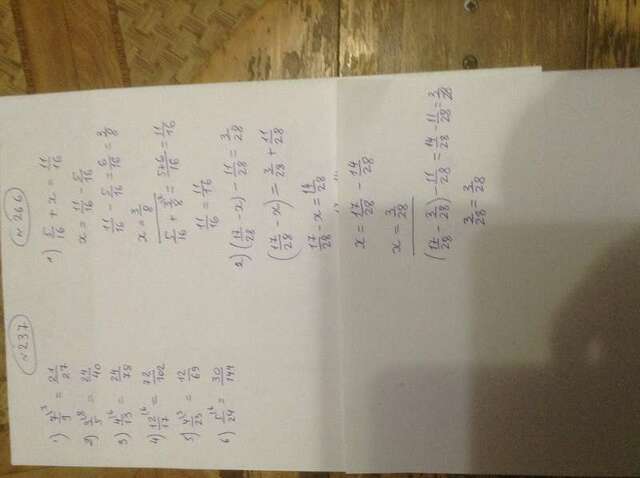 №237
1) 7/9 ^3 = 21/27
2) 3/5 ^8 = 24/40
3) 4/13 ^6 = 24/78
4) 12/17 ^6 = 72/102
5) 4/23 ^3 = 12/69
6) 5/24 ^6 = 30/144
№266
1) 5/16 + x = 11/16
x = 11/16 - 5/16
11/16 - 5/16 = 6/16 = 3/8
x = 3/8
5/16 + 3/8 ^2 = 5+6/16 = 11/16
11/16 = 11/16
2) (17/28 - x) - 11/28 = 3/28
(17/28 - x) = 3/28 + 11/28
17/28 - x = 14/28
x = 17/28 - 14/28
x = 3/28
(17/28 - 3/28) - 11/28 = 14/28 - 11/28 = 3/28
3/28 = 3/28